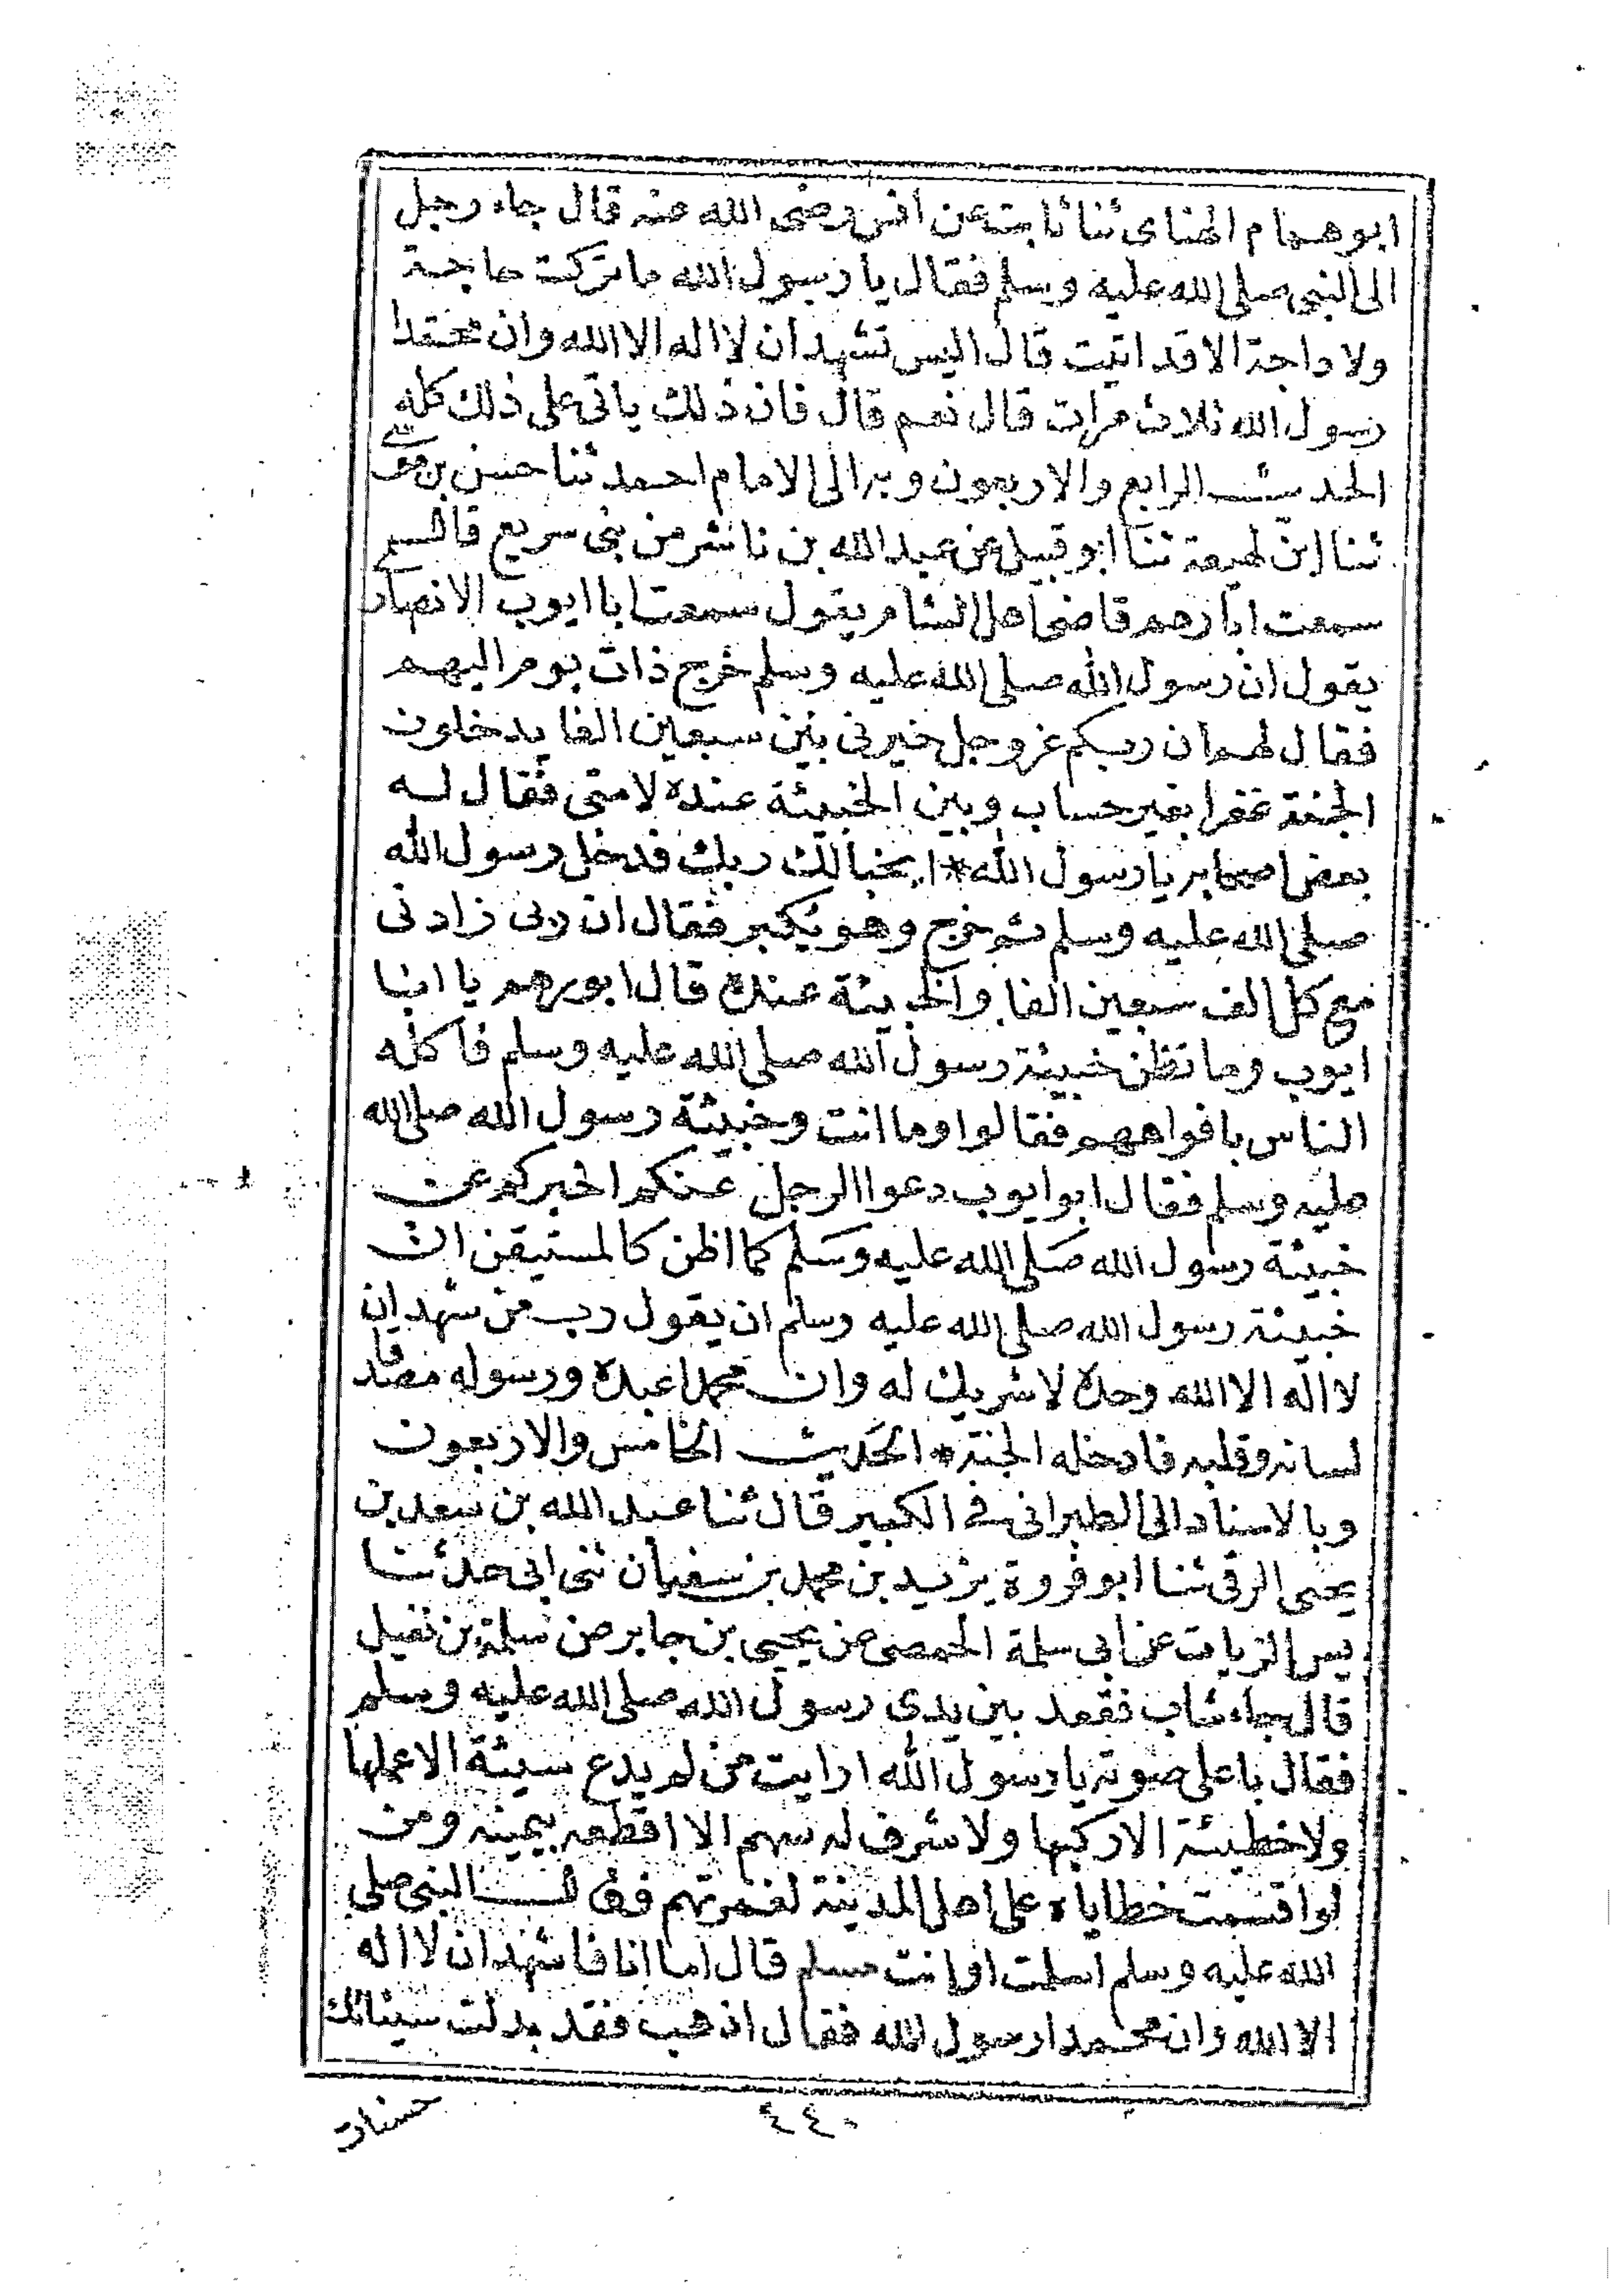 ابوهمام الهنای ثنا ثابت عن انس رضی الله عنه قال جاء رجل
الی النبی صلی الله علیه وسلم فقال یا رسول الله ما ترکت حاجة
ولا داجة الا قد اتیت قال الیس تشهد ان لا اله الا الله وان محمدا
رسول الله ثلاث مرات قال نعم قال فان ذلك یاتی علی ذلك کله
الحدیث الرابع والاربعون وبه الی الامام احمد ثنا حسن بن موسی
ثنا ابن لهیعة ثنا ابو قبیل عن عبد الله بن ناشر من بنی سریع قال
سمعت ابا رهم قاضی اهل الشام یقول سمعت ابا ایوب الانصار
یقول ان رسول الله صلی الله علیه وسلم خرج ذات یوم الیهم
فقال لهم ان ربکم عز وجل خیرنی بین سبعین الفا یدخلون
الجنة غفرا بغیر حساب وبین الخبیئة عنده لامتی فقال له
بعض اصحابه یا رسول الله * ایخبا لك ربك فدخل رسول الله
صلی الله علیه وسلم ثم خرج وهو یکبر فقال ان ربی زادنی
مع کل الف سبعین الفا والخبیئة عنده قال ابورهم یا ابا
ایوب وما تظن خبیئة رسول الله صلی الله علیه وسلم فاکله
الناس بافواههم فقالوا وما انت وخبیئة رسول الله صلی الله
علیه وسلم فقال ابو ایوب دعوا الرجل عنکم اخبرکم عن
خبیئة رسول الله صلی الله علیه وسلم کما اظن کالمستیقن ان
خبیئة رسول الله صلی الله علیه وسلم ان یقول رب من شهد ان
لا اله الا الله وحده لا شریك له وان محمدا عبده ورسوله مصدقا
لسانه وقلبه فادخله الجنة * الحدیث الخامس والاربعون
وبالاسناد الی الطبرانی فی الکبیر قال ثنا عبد الله بن سعد بن
یحیی الرقی ثنا ابو فروة یزید بن محمد بن سفیان ثنی ابی حدثنا
یس الزیات عن ابی سلمة الحمصی عن یحیی بن جابر عن سلمة بن نفیل
قال جاء شاب فقعد بین یدی رسول الله صلی الله علیه وسلم
فقال باعلی صوته یا رسول الله ارایت من لم یدع سیئة الا عملها
ولا خطیئة الا رکبها ولا شرف له سهم الا اقطعه بیمینه ومن
لو اقسمت خطایاه علی اهل المدینة لغمرتهم فقال النبی صلی
الله علیه وسلم اسلمت او انت مسلم قال اما انا فاشهد ان لا اله
الا الله وان محمدا رسول الله فقال اذهب فقد بدلت سیئاتك
حسنات
٤٤٠